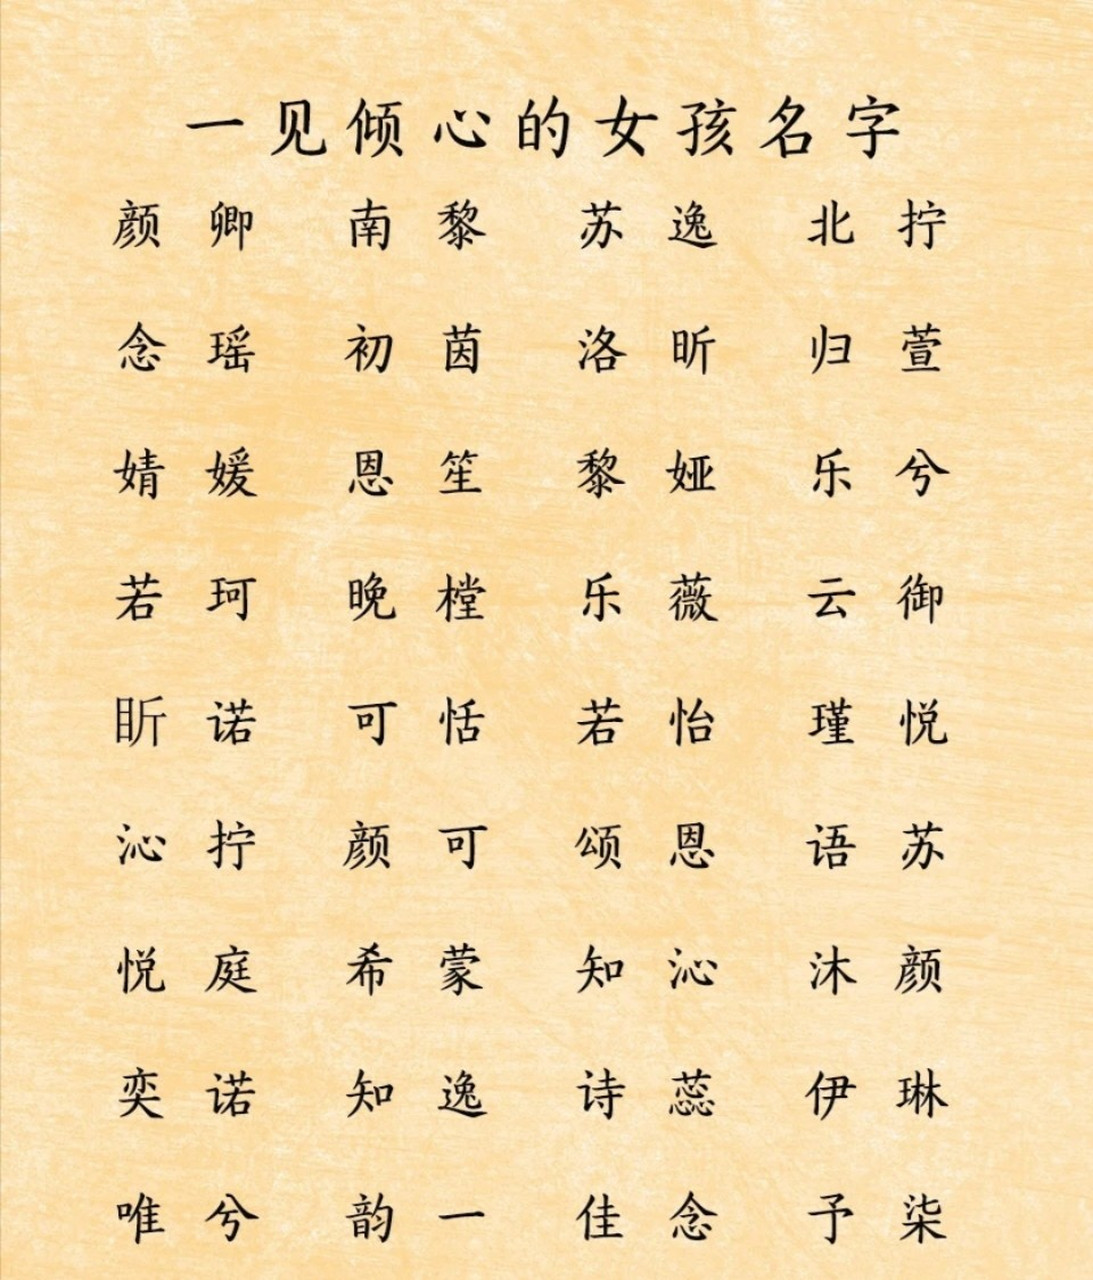 一见倾心的女孩名字
颜卿 南黎 苏逸 北拧
念瑶 初茵 洛昕 归萱
婧媛 恩笙 黎娅 乐兮
若珂 晚樘 乐薇 云御
盺诺 可恬 若怡 瑾悦
沁拧 颜可 颂恩 语苏
悦庭 希蒙 知沁 沐颜
奕诺 知逸 诗蕊 伊琳
唯兮 韵一 佳念 予柒